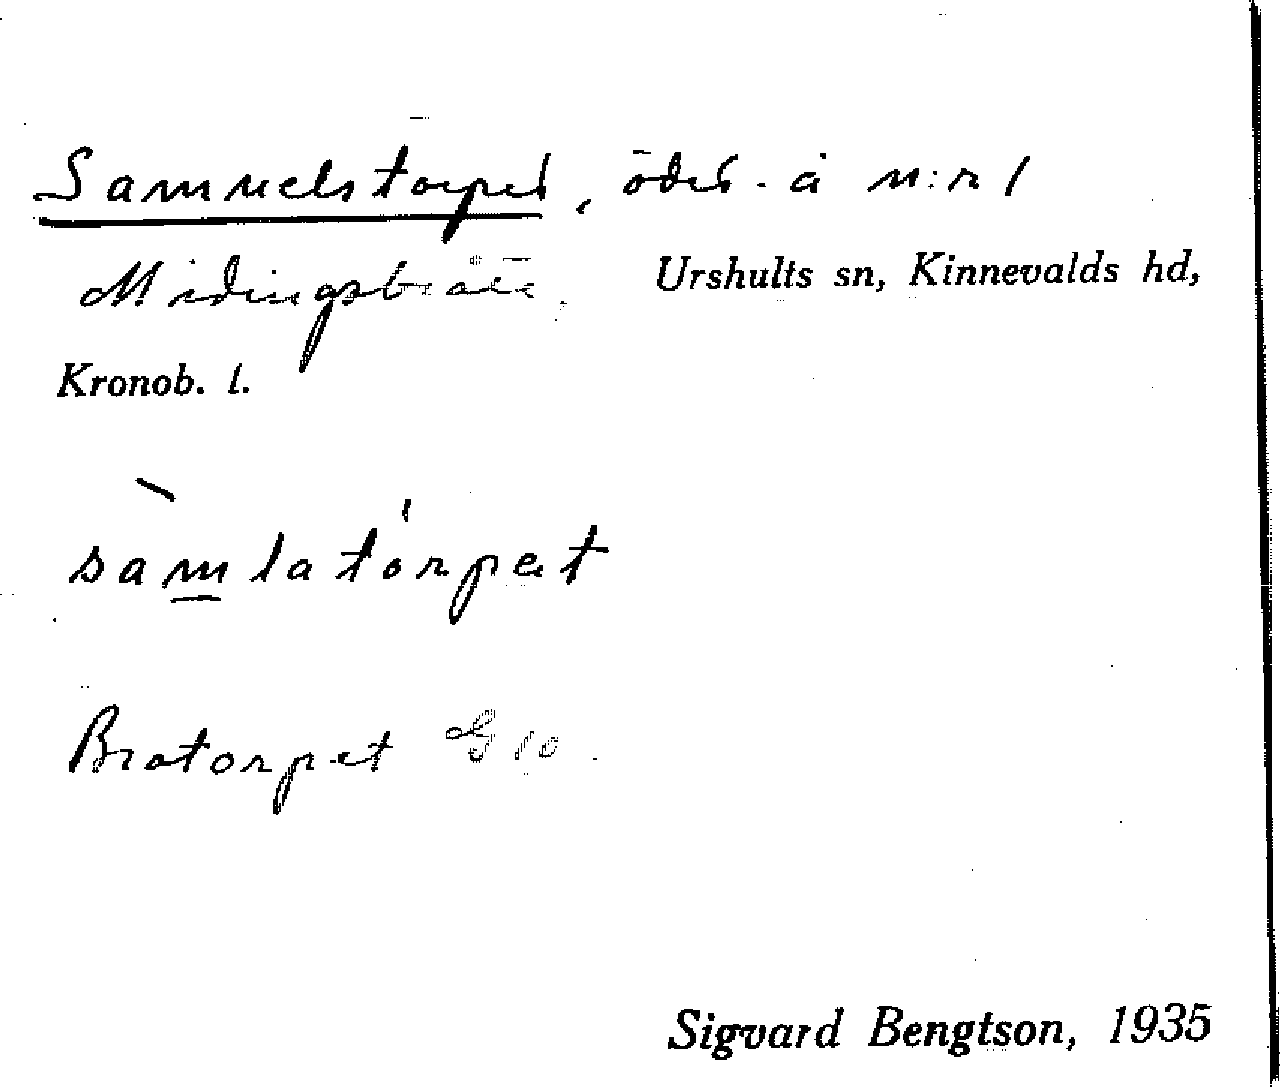 Samuelstorpet, ödet. å n:r 1
Midingsbråte, Urshults sn, Kinnevalds hd,
Kronob. l.
sàmlatórpet
Brotorpet G 10.
Sigvard Bengtson, 1935